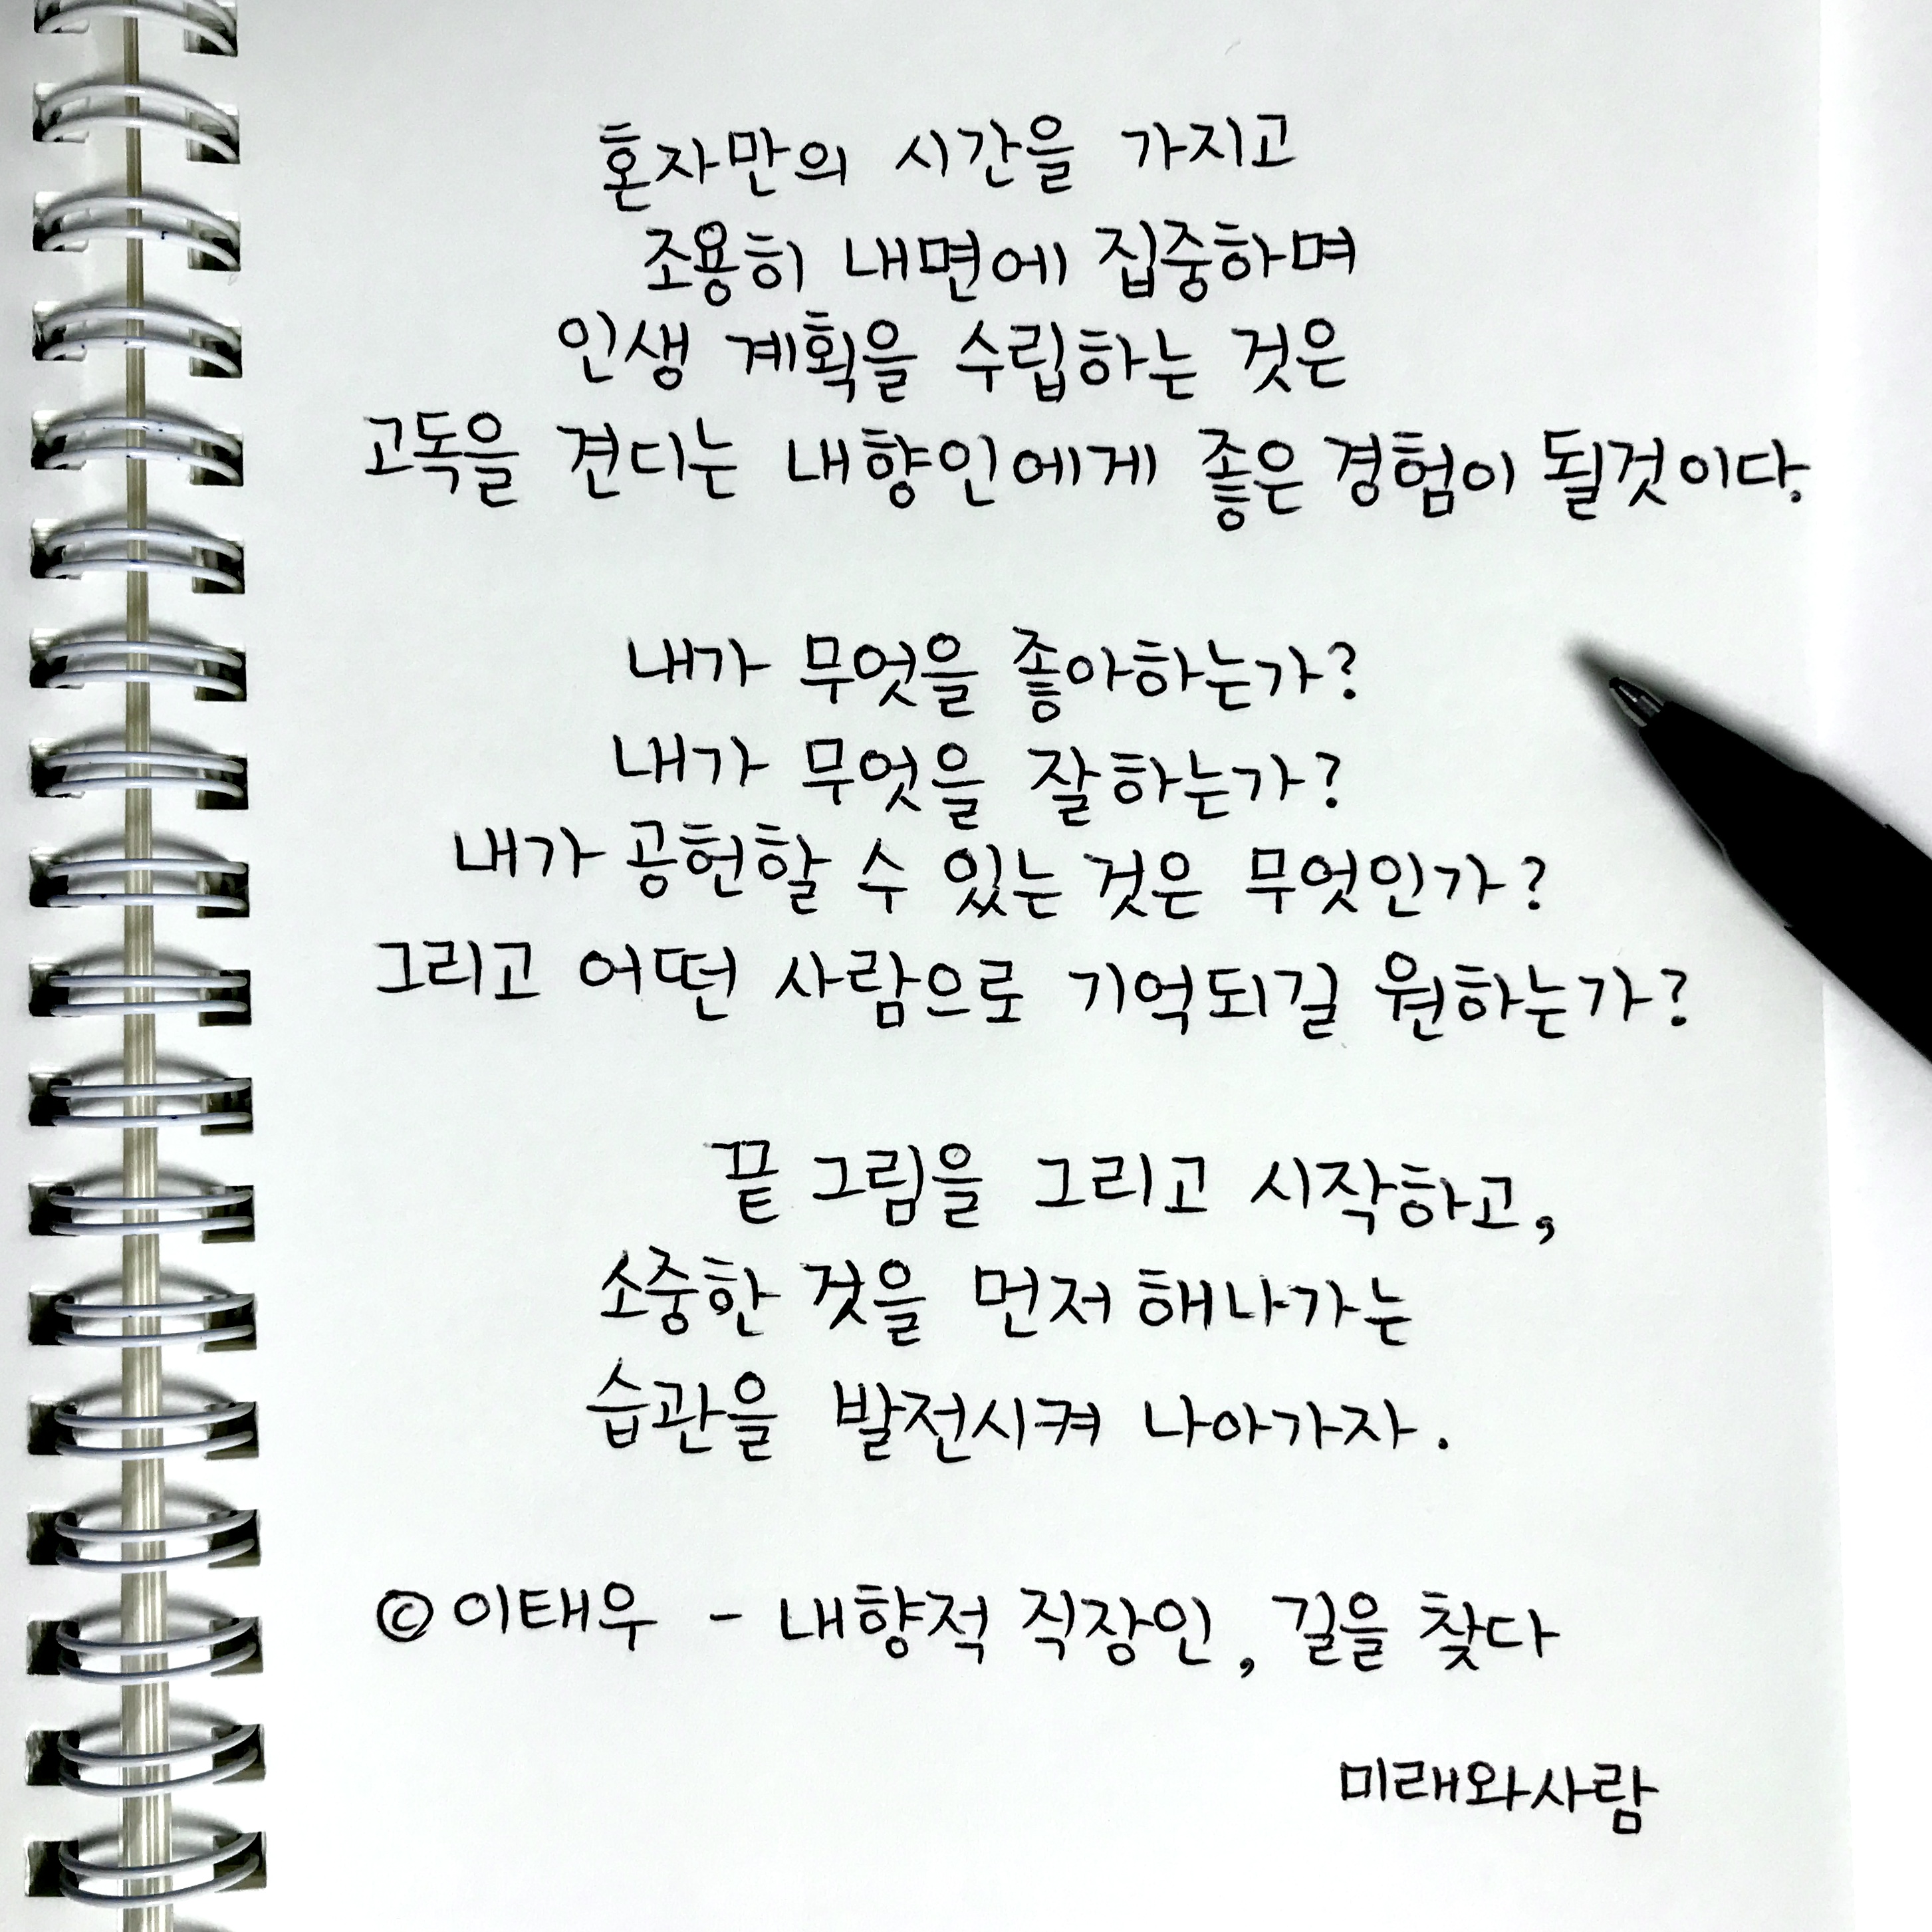 혼자만의 시간을 가지고
조용히 내면에 집중하며
인생 계획을 수립하는 것은
고독을 견디는 내향인에게 좋은 경험이 될것이다.
내가 무엇을 좋아하는가?
내가 무엇을 잘하는가?
내가 공헌할 수 있는 것은 무엇인가?
그리고 어떤 사람으로 기억되길 원하는가?
끝 그림을 그리고 시작하고,
소중한 것을 먼저 해나가는
습관을 발전시켜 나아가자.
© 이태우 - 내향적 직장인, 길을 찾다
미래와사람